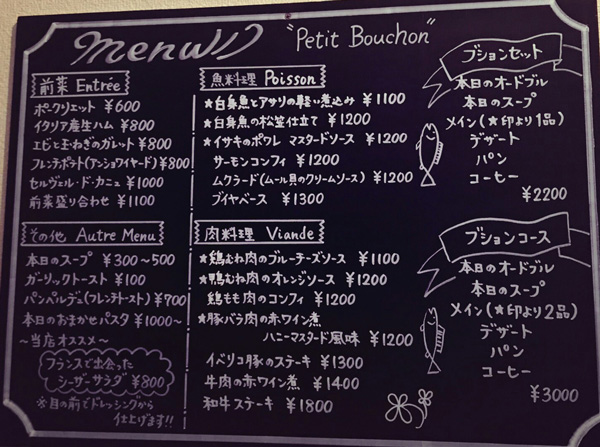 menu
"Petit Bouchon"
前菜 Entrée
ポークリエット ¥600
イタリア産生ハム ¥800
エビと玉ねぎのガレット ¥800
フレンチポテト(アンショワイヤード) ¥800
セルヴェル・ド・カニュ ¥1000
前菜盛り合わせ ¥1100
その他 Autre Menu
本日のスープ ¥300~500
ガーリックトースト ¥100
パンペルデュ(フレンチトースト) ¥700
本日のおまかせパスタ ¥1000~
~当店オススメ~
フランスで出会った
シーザーサラダ ¥800
※目の前でドレッシングから
仕上げます!!
魚料理 Poisson
★白身魚とアサリの軽い煮込み ¥1100
★白身魚の松笠仕立て ¥1200
★イサキのポワレ マスタードソース ¥1200
サーモンコンフィ ¥1200
ムクラード(ムール貝のクリームソース) ¥1200
ブイヤベース ¥1300
肉料理 Viande
★鶏むね肉のブルーチーズソース ¥1100
★鴨むね肉のオレンジソース ¥1200
鶏もも肉のコンフィ ¥1200
★豚バラ肉の赤ワイン煮
ハニーマスタード風味 ¥1200
イベリコ豚のステーキ ¥1300
牛肉の赤ワイン煮 ¥1400
和牛ステーキ ¥1800
ブションセット
本日のオードブル
本日のスープ
メイン(★印より1品)
デザート
パン
コーヒー
¥2200
ブションコース
本日のオードブル
本日のスープ
メイン(★印より2品)
デザート
パン
コーヒー
¥3000